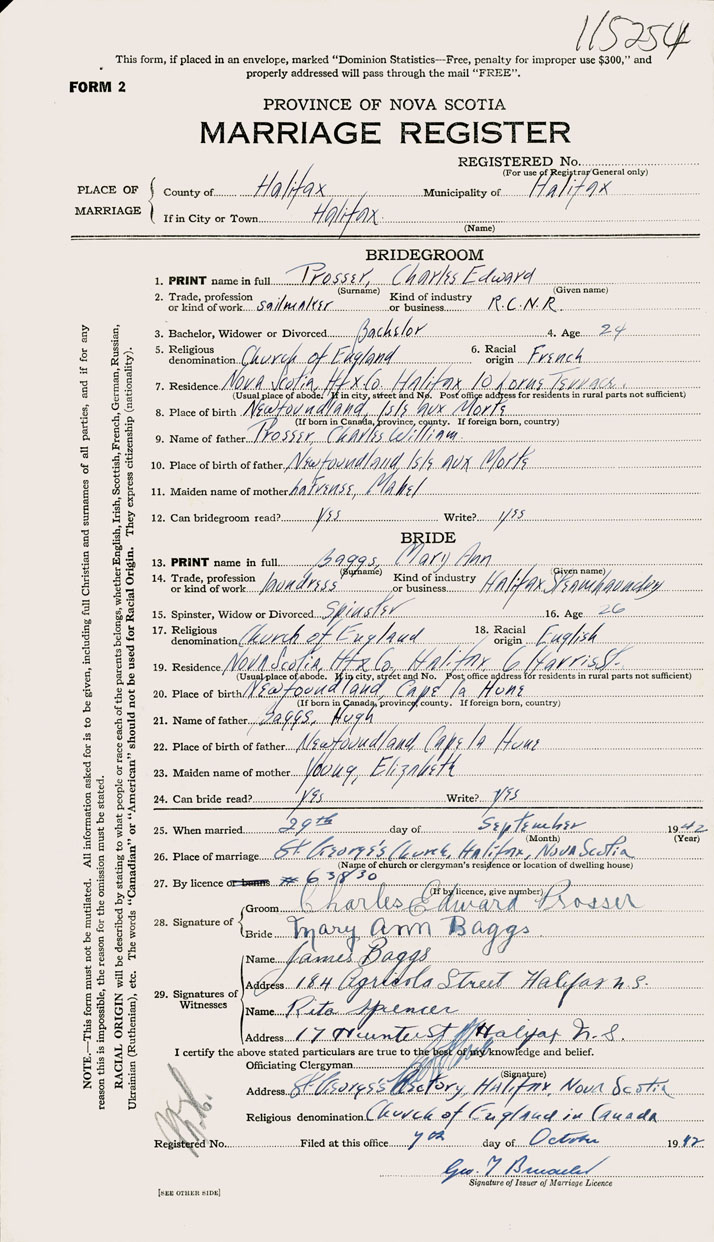 115254
This form, if placed in an envelope, marked "Dominion Statistics—Free, penalty for improper use $300," and
properly addressed will pass through the mail "FREE".
FORM 2
PROVINCE OF NOVA SCOTIA
MARRIAGE REGISTER
REGISTERED No.
(For use of Registrar General only)
PLACE OF MARRIAGE
County of Halifax Municipality of Halifax
If in City or Town Halifax
(Name)
BRIDEGROOM
1. PRINT name in full Prosser, Charles Edward
(Surname) (Given name)
2. Trade, profession or kind of work sailmaker Kind of industry or business R.C.N.R.
3. Bachelor, Widower or Divorced Bachelor 4. Age 24
5. Religious denomination Church of England 6. Racial origin French
7. Residence Nova Scotia, Hfx Co. Halifax 10 Lorne Terrace.
(Usual place of abode. If in city, street and No. Post office address for residents in rural parts not sufficient)
8. Place of birth Newfoundland, Isle aux Morte
(If born in Canada, province, county. If foreign born, country)
9. Name of father Prosser, Charles William
10. Place of birth of father Newfoundland, Isle aux Morte
11. Maiden name of mother Mabel
12. Can bridegroom read? Yes Write? yes
BRIDE
13. PRINT name in full Baggs, Mary Ann
(Surname) (Given name)
14. Trade, profession or kind of work Laundress Kind of industry or business Halifax Steam Laundry
15. Spinster, Widow or Divorced Spinster 16. Age 26
17. Religious denomination Church of England 18. Racial origin English
19. Residence Nova Scotia, Hfx Co., Halifax 6 Harris St.
(Usual place of abode. If in city, street and No. Post office address for residents in rural parts not sufficient)
20. Place of birth Newfoundland, Cape la Hune
(If born in Canada, province, county. If foreign born, country)
21. Name of father Baggs, Hugh
22. Place of birth of father Newfoundland Cape la Hune
23. Maiden name of mother Young, Elizabeth
24. Can bride read? Yes Write? Yes
25. When married 29th day of September 1942
(Month) (Year)
26. Place of marriage St. George's Church, Halifax, Nova Scotia
(Name of church or clergyman's residence or location of dwelling house)
27. By licence or banns # 63830
(If by licence, give number)
28. Signature of
Groom Charles Edward Prosser
Bride Mary Ann Baggs
29. Signatures of Witnesses
Name James Baggs
Address 184 Agricola Street Halifax N.S.
Name Rita Spencer
Address 17 Hunter St Halifax N.S.
I certify the above stated particulars are true to the best of my knowledge and belief.
Officiating Clergyman
(Signature)
Address St George's Rectory, Halifax, Nova Scotia
Religious denomination Church of England in Canada
Registered No. Filed at this office 7th day of October 1942
Geo.
Signature of Issuer of Marriage Licence
[SEE OTHER SIDE]
NOTE.—This form must not be mutilated. All information asked for is to be given, including full Christian and surnames of all parties, and if for any
reason this is impossible, the reason for the omission must be stated.
RACIAL ORIGIN will be described by stating to what people or race each of the parents belongs, whether English, Irish, Scottish, French, German, Russian,
Ukrainian (Ruthenian), etc. The words "Canadian" or "American" should not be used for Racial Origin. They express citizenship (nationality).